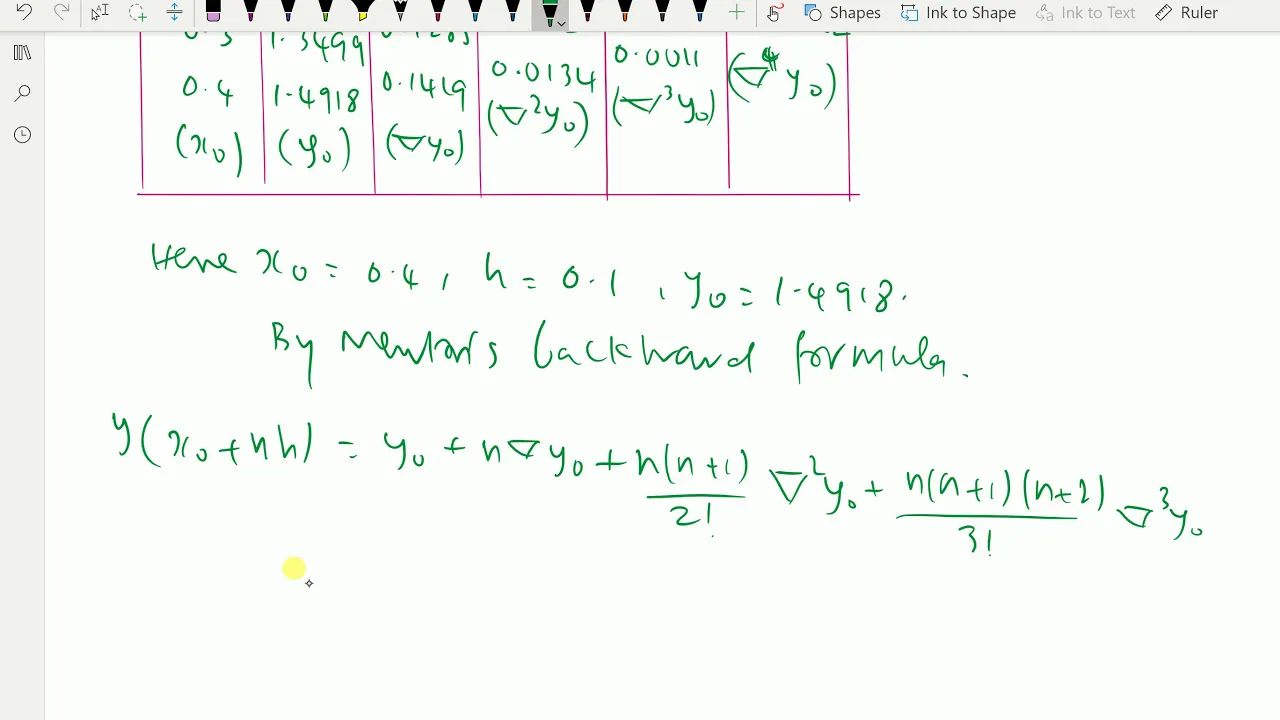 Shapes Ink to Shape Ink to Text Ruler
1.3499
0.4 1.4918 0.1419 0.0134 0.0011
(x₀) (y₀) (∇y₀) (∇²y₀) (∇³y₀) (∇⁴y₀)
Here x₀ = 0.4, h = 0.1, y₀ = 1.4918.
By Newton's backward formula.
y(x₀+nh) = y₀ + n∇y₀ + n(n+1)/2! ∇²y₀ + n(n+1)(n+2)/3! ∇³y₀